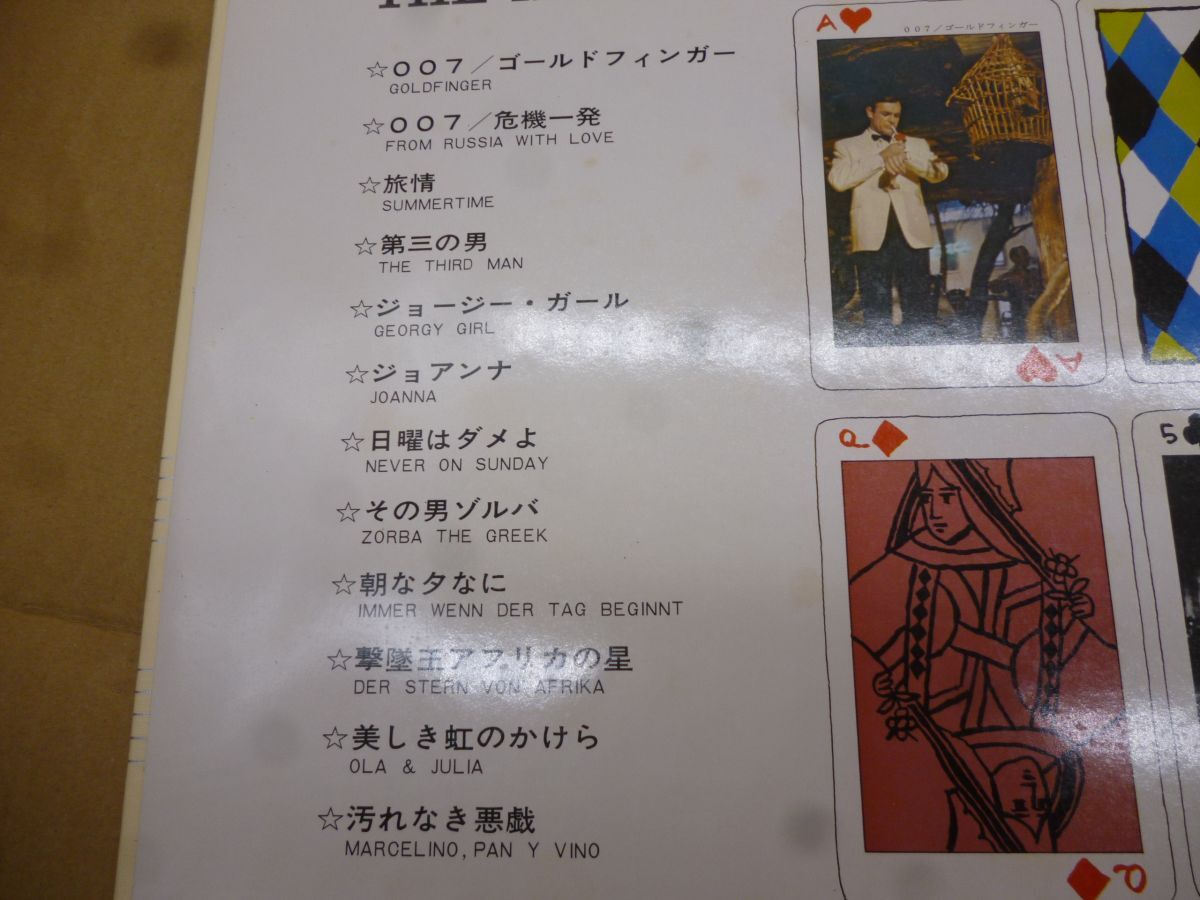 THE
☆００７／ゴールドフィンガー
GOLDFINGER
☆００７／危機一発
FROM RUSSIA WITH LOVE
☆旅情
SUMMERTIME
☆第三の男
THE THIRD MAN
☆ジョージー・ガール
GEORGY GIRL
☆ジョアンナ
JOANNA
☆日曜はダメよ
NEVER ON SUNDAY
☆その男ゾルバ
ZORBA THE GREEK
☆朝な夕なに
IMMER WENN DER TAG BEGINNT
☆撃墜王アフリカの星
DER STERN VON AFRIKA
☆美しき虹のかけら
OLA & JULIA
☆汚れなき悪戯
MARCELINO, PAN Y VINO
A
００７／ゴールドフィンガー
A
Q
Q
5